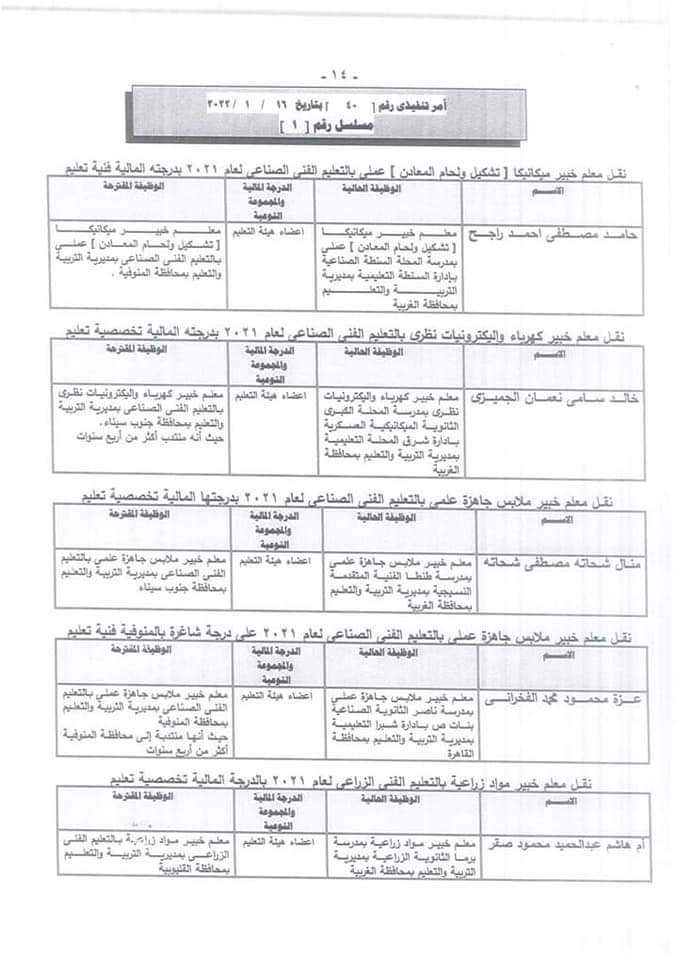 - ١٤ -
أمر تنفيذى رقم [ ٤٠ ] بتاريخ ١٦ / ١ / ٢٠٢٢
مسلسل رقم [ ١ ]
نقل معلم خبير ميكانيكا [ تشكيل ولحام المعادن ] عملى بالتعليم الفنى الصناعى لعام ٢٠٢١ بدرجته المالية فنية تعليم
الاسم
الوظيفة الحالية
الدرجة المالية
والمجموعة
النوعية
الوظيفة المقترحة
حامد مصطفى احمد راجح
معلم خبير ميكانيكا
[ تشكيل ولحام المعادن ] عملى
بمدرسة المحلة السنطة الصناعية
بإدارة السنطة التعليمية بمديرية
التربية والتعليم
بمحافظة الغربية
اعضاء هيئة التعليم
معلم خبير ميكانيكا
[ تشكيل ولحام المعادن ] عملى
بالتعليم الفنى الصناعى بمديرية التربية
والتعليم بمحافظة المنوفية .
نقل معلم خبير كهرباء واليكترونيات نظرى بالتعليم الفنى الصناعى لعام ٢٠٢١ بدرجته المالية تخصصية تعليم
الاسم
الوظيفة الحالية
الدرجة المالية
والمجموعة
النوعية
الوظيفة المقترحة
خالد سامى نعمان الجميزى
معلم خبير كهرباء واليكترونيات
نظرى بمدرسة المحلة الكبرى
الثانوية الميكانيكية العسكرية
بادارة شرق المحلة التعليمية
بمديرية التربية والتعليم بمحافظة
الغربية
اعضاء هيئة التعليم
معلم خبير كهرباء واليكترونيات نظرى
بالتعليم الفنى الصناعى بمديرية التربية
والتعليم بمحافظة جنوب سيناء .
حيث أنه منتدب أكثر من أربع سنوات
نقل معلم خبير ملابس جاهزة علمى بالتعليم الفنى الصناعى لعام ٢٠٢١ بدرجتها المالية تخصصية تعليم
الاسم
الوظيفة الحالية
الدرجة المالية
والمجموعة
النوعية
الوظيفة المقترحة
منال شحاته مصطفى شحاته
معلم خبير ملابس جاهزة علمى
بمدرسة طنطا الفنية المتقدمة
النسيجية بمديرية التربية والتعليم
بمحافظة الغربية
اعضاء هيئة التعليم
معلم خبير ملابس جاهزة علمى بالتعليم
الفنى الصناعى بمديرية التربية والتعليم
بمحافظة جنوب سيناء
نقل معلم خبير ملابس جاهزة عملى بالتعليم الفنى الصناعى لعام ٢٠٢١ على درجة شاغرة بالمنوفية فنية تعليم
الاسم
الوظيفة الحالية
الدرجة المالية
والمجموعة
النوعية
الوظيفة المقترحة
عزة محمود محمد الفخرانى
معلم خبير ملابس جاهزة عملى
بمدرسة ناصر الثانوية الصناعية
بنات ص بادارة شبرا التعليمية
بمديرية التربية والتعليم بمحافظة
القاهرة
اعضاء هيئة التعليم
معلم خبير ملابس جاهزة عملى بالتعليم
الفنى الصناعى بمديرية التربية والتعليم
بمحافظة المنوفية
حيث أنها منتدبة إلى محافظة المنوفية
أكثر من أربع سنوات
نقل معلم خبير مواد زراعية بالتعليم الفنى الزراعى لعام ٢٠٢١ بالدرجة المالية تخصصية تعليم
الاسم
الوظيفة الحالية
الدرجة المالية
والمجموعة
النوعية
الوظيفة المقترحة
أم هاشم عبدالحميد محمود صقر
معلم خبير مواد زراعية بمدرسة
برما الثانوية الزراعية بمديرية
التربية والتعليم بمحافظة الغربية
اعضاء هيئة التعليم
معلم خبير مواد زراعية بالتعليم الفنى
الزراعى بمديرية التربية والتعليم
بمحافظة القليوبية